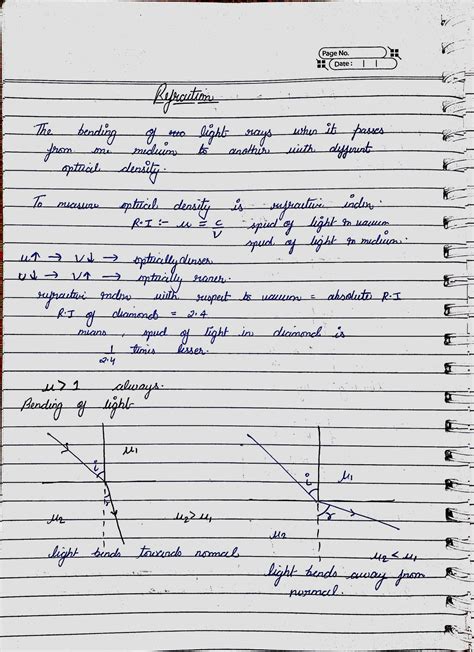 Page No.
Date:
Refraction
The bending of light rays when it passes
from one medium to another with different
optical density.
To measure optical density is refractive index.
R.I :- μ = c/v speed of light in vacuum
speed of light in medium.
μ↑ → V↓ → optically denser
μ↓ → V↑ → optically rarer.
refractive index with respect to vacuum = absolute R.I
R.I of diamond = 2.4
means, speed of light in diamond is
1/2.4 times lesser.
μ > 1 always.
Bending of light
i μ1
μ2 μ2>μ1
light bends towards normal
i μ1
μ2 r
μ2 < μ1
light bends away from
normal.